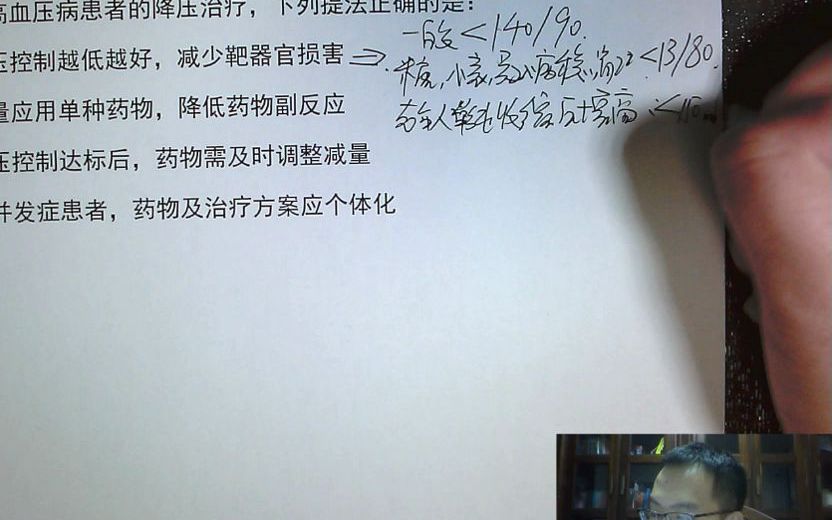 高血压病患者的降压治疗，下列提法正确的是：
压控制越低越好，减少靶器官损害
一般<140/90.
糖，心衰，病稳 <13/80.
量应用单种药物，降低药物副反应
老年人收缩压 <150
压控制达标后，药物需及时调整减量
并发症患者，药物及治疗方案应个体化